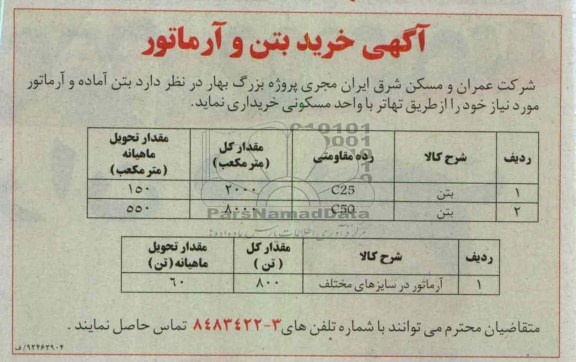 آگهی خرید بتن و آرماتور
شرکت عمران و مسکن شرق ایران مجری پروژه بزرگ بهار در نظر دارد بتن آماده و آرماتور
مورد نیاز خود را از طریق تهاتر با واحد مسکونی خریداری نماید.
ردیف شرح کالا رده مقاومتی مقدار کل (متر مکعب) مقدار تحویل ماهیانه (متر مکعب)
۱ بتن C25 ۲۰۰۰ ۱۵۰
۲ بتن C50 ۸۰۰۰ ۵۵۰
ParsNamadData
ردیف شرح کالا مقدار کل (تن) مقدار تحویل ماهیانه (تن)
۱ آرماتور در سایزهای مختلف ۸۰۰ ۶۰
متقاضیان محترم می توانند با شماره تلفن های ۳-۸۴۸۳۴۲۲ تماس حاصل نمایند .
۹۲۴۶۲۹۰۴/ف